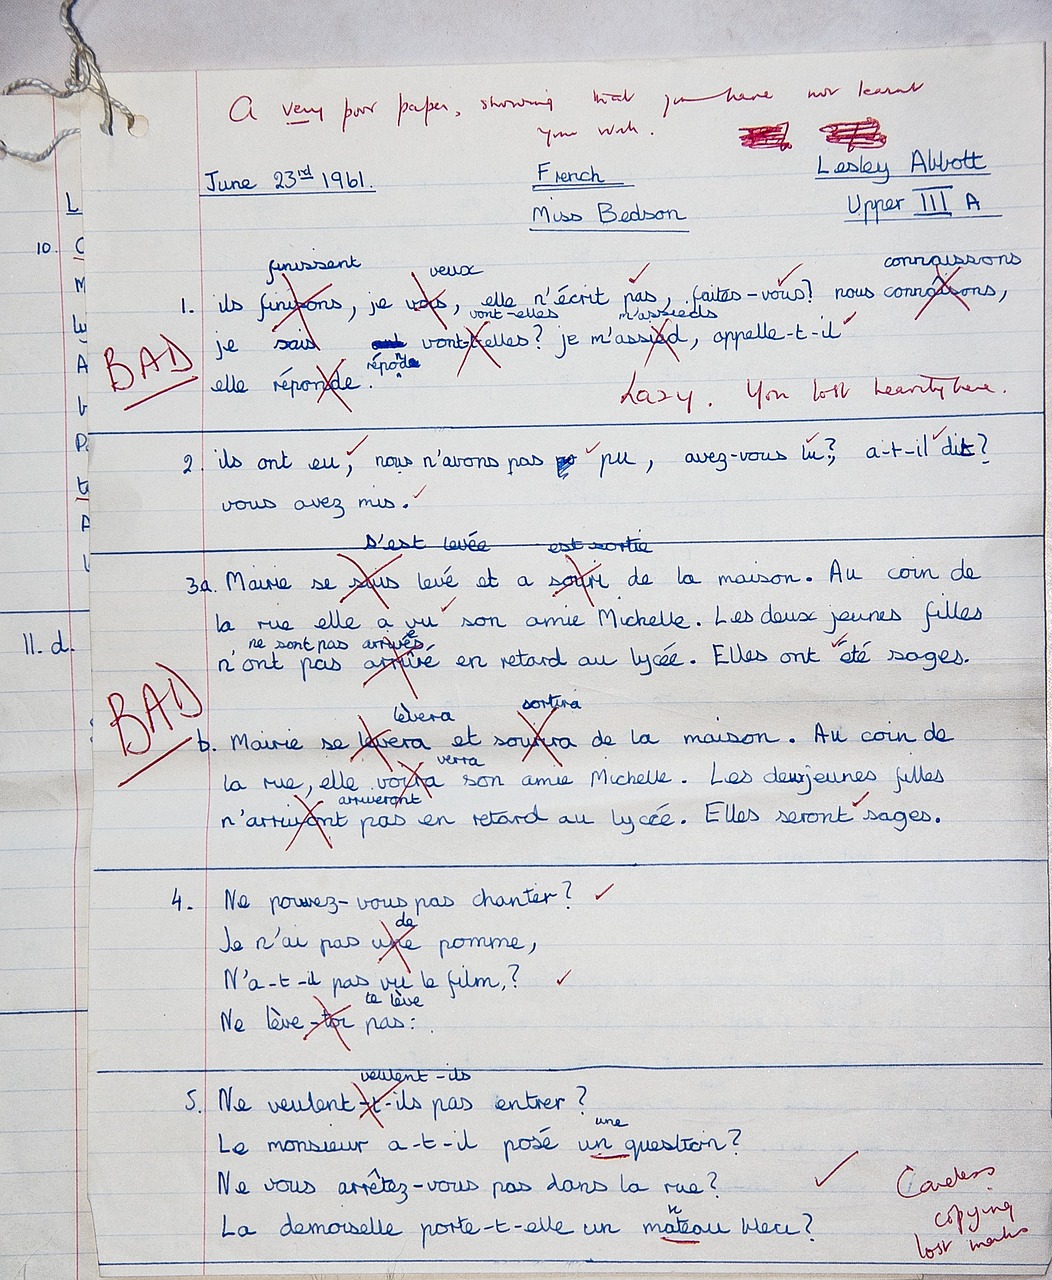 A very poor paper, showing that you have not learnt
your work.
June 23rd 1961.
French
Lesley Abbott
Miss Bedson
Upper III A
L
10.
finissent
veux
connaissons
1. ils finisons, je vois, elle n'écrit pas, faites-vous? nous connaisons,
vont-elles
m'assieds
BAD
je sais vont-t-elles? je m'assied, appelle-t-il
réponde
elle réponde.
Lazy. You lost heavily here.
2. ils ont eu, nous n'avons pas pu, avez-vous lu?, a-t-il dit?
vous avez mis.
s'est levée
est sortie
3a. Mairie se suis levé et a souri de la maison. Au coin de
la rue elle a vu son amie Michelle. Les deux jeunes filles
ne sont pas arrivées
11. d.
n'ont pas arrivé en retard au lycée. Elles ont été sages.
BAD
lèvera
sortira
b. Mairie se levera et sourira de la maison. Au coin de
verra
la rue, elle voira son amie Michelle. Les deux jeunes filles
arriveront
n'arrivont pas en retard au lycée. Elles seront sages.
4. Ne pouvez-vous pas chanter?
de
Je n'ai pas une pomme,
N'a-t-il pas vu le film,?
te lève
Ne lève-toi pas:
veulent-ils
5. Ne veulent-t-ils pas entrer?
une
Le monsieur a-t-il posé un question?
Ne vous arrêtez-vous pas dans la rue?
n
La demoiselle porte-t-elle un mateau bleu?
Careless
copying
lost marks